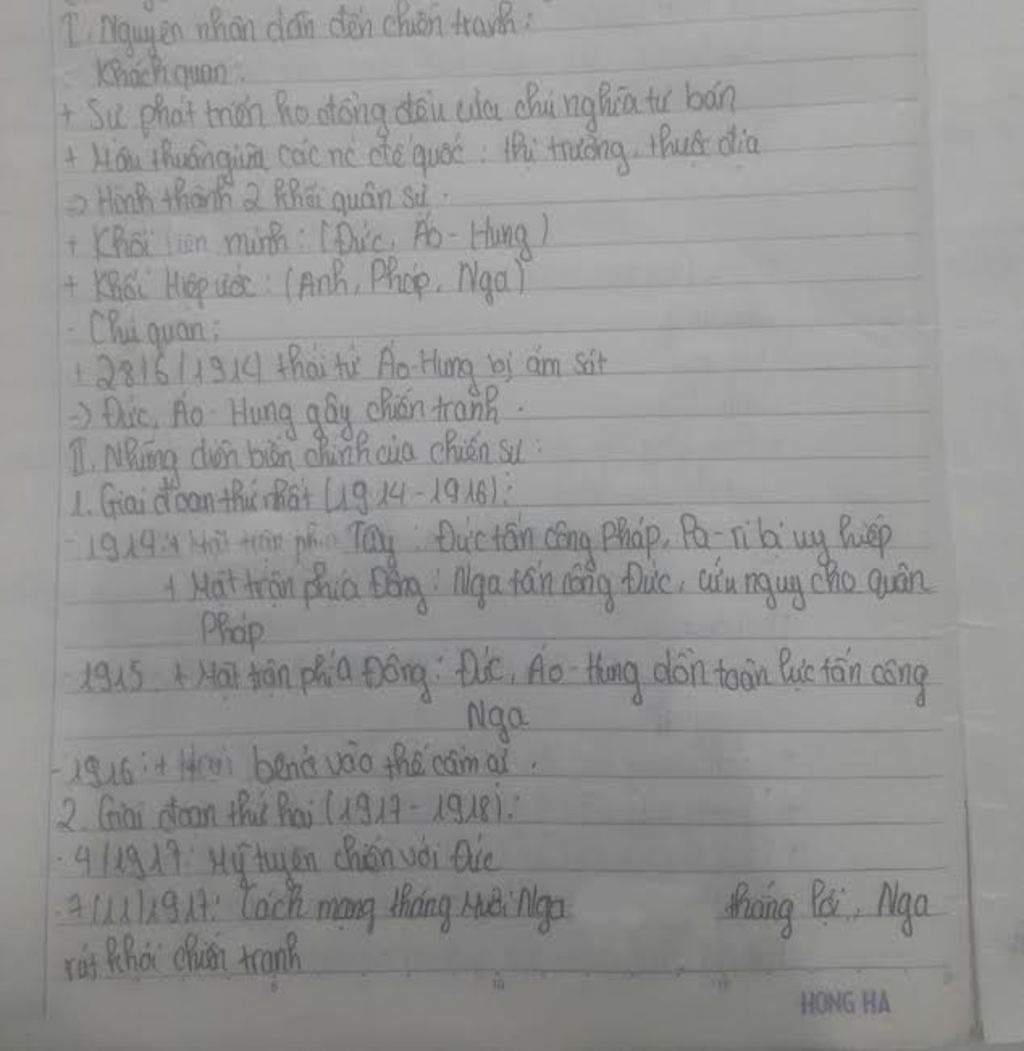 I. Nguyên nhân dẫn đến chiến tranh:
Khách quan:
+ Sự phát triển ko đồng đều của chủ nghĩa tư bản
+ Mâu thuẫn giữa các nc đế quốc: thị trường, thuộc địa
=> Hình thành 2 khối quân sự.
+ Khối liên minh: (Đức, Áo-Hung)
+ Khối Hiệp ước: (Anh, Pháp, Nga)
- Chủ quan:
+ 28/6/1914 thái tử Áo-Hung bị ám sát
-> Đức, Áo-Hung gây chiến tranh.
II. Những diễn biến chính của chiến sự:
1. Giai đoạn thứ nhất (1914-1916):
- 1914: + Mặt trận phía Tây: Đức tấn công Pháp, Pa-ri bị uy hiếp
+ Mặt trận phía Đông: Nga tấn công Đức, cứu nguy cho quân
Pháp
1915: + Mặt trận phía Đông: Đức, Áo-Hung dồn toàn lực tấn công
Nga
- 1916: + Hai bên ở vào thế cầm cự.
2. Giai đoạn thứ hai (1917-1918):
- 4/1917: Mỹ tuyên chiến với Đức
- 7/11/1917: Cách mạng tháng Mười Nga thắng lợi, Nga
rút khỏi chiến tranh
HONG HA